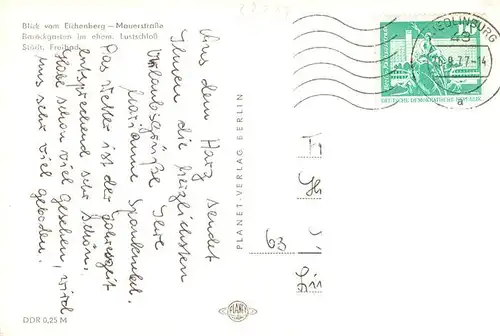 Blick vom Eichenberg – Mauerstraße
Barockgarten im ehem. Lustschloß
Städt. Freibad
Aus dem Harz sendet
Ihnen die herzlichsten
Urlaubsgrüße Ihre
Marianne
Das Wetter ist der Jahreszeit
entsprechend sehr schön.
Habe schon viel gesehen, wird
uns sehr viel geboten.
PLANET-VERLAG BERLIN
63
QUEDLINBURG
43
.8.77-14
a
DEUTSCHE DEMOKRATISCHE REPUBLIK
PLANET
DDR 0,25 M